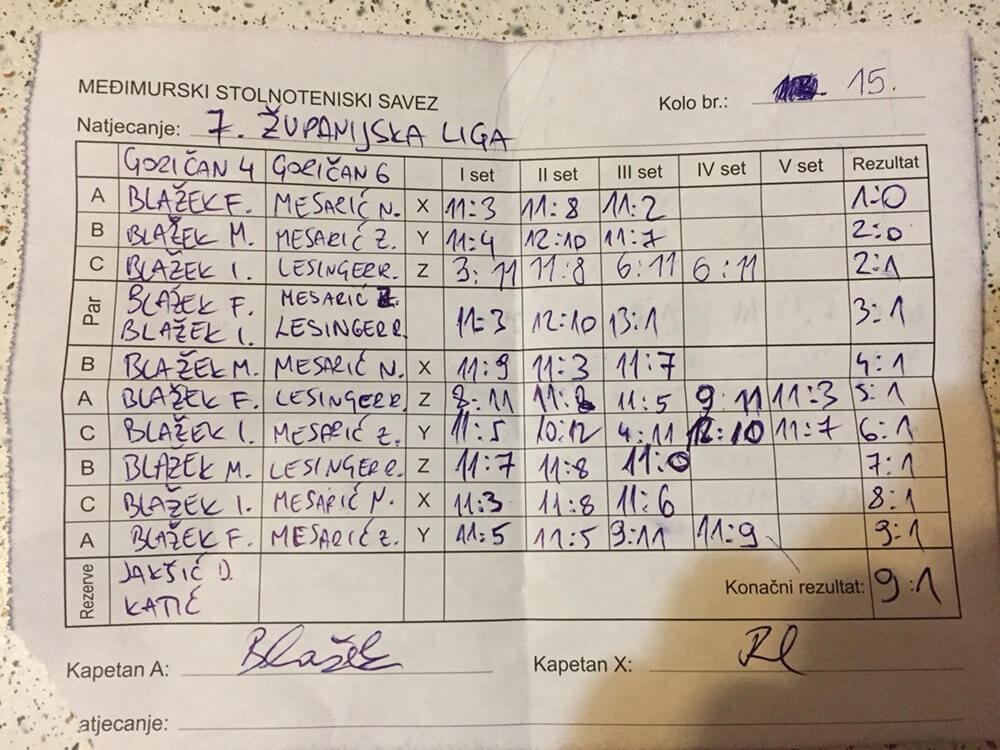 MEĐIMURSKI STOLNOTENISKI SAVEZ
Kolo br.: 15.
Natjecanje: 7. ŽUPANIJSKA LIGA
GORIČAN 4 GORIČAN 6 I set II set III set IV set V set Rezultat
A BLAŽEK F. MESARIĆ N. X 11:3 11:8 11:2 1:0
B BLAŽEK M. MESARIĆ Z. Y 11:4 12:10 11:7 2:0
C BLAŽEK I. LESINGER R. Z 3:11 11:8 6:11 6:11 2:1
Par BLAŽEK F. MESARIĆ Z.
BLAŽEK I. LESINGER R. 11:3 12:10 13:1 3:1
B BLAŽEK M. MESARIĆ N. X 11:9 11:3 11:7 4:1
A BLAŽEK F. LESINGER R. Z 8:11 11:8 11:5 9:11 11:3 5:1
C BLAŽEK I. MESARIĆ Z. Y 11:5 10:12 4:11 12:10 11:7 6:1
B BLAŽEK M. LESINGER R. Z 11:7 11:8 11:0 7:1
C BLAŽEK I. MESARIĆ N. X 11:3 11:8 11:6 8:1
A BLAŽEK F. MESARIĆ Z. Y 11:5 11:5 9:11 11:9 9:1
Rezerve JAKŠIĆ D.
KATIĆ
Konačni rezultat: 9:1
Kapetan A: Blažek Kapetan X:
atjecanje: